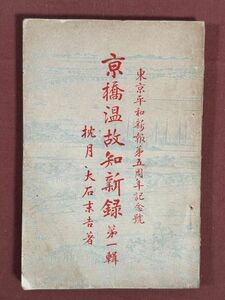 東京平和新報第五周年記念號
京橋温故知新録 第一輯
枕月 大石末吉著